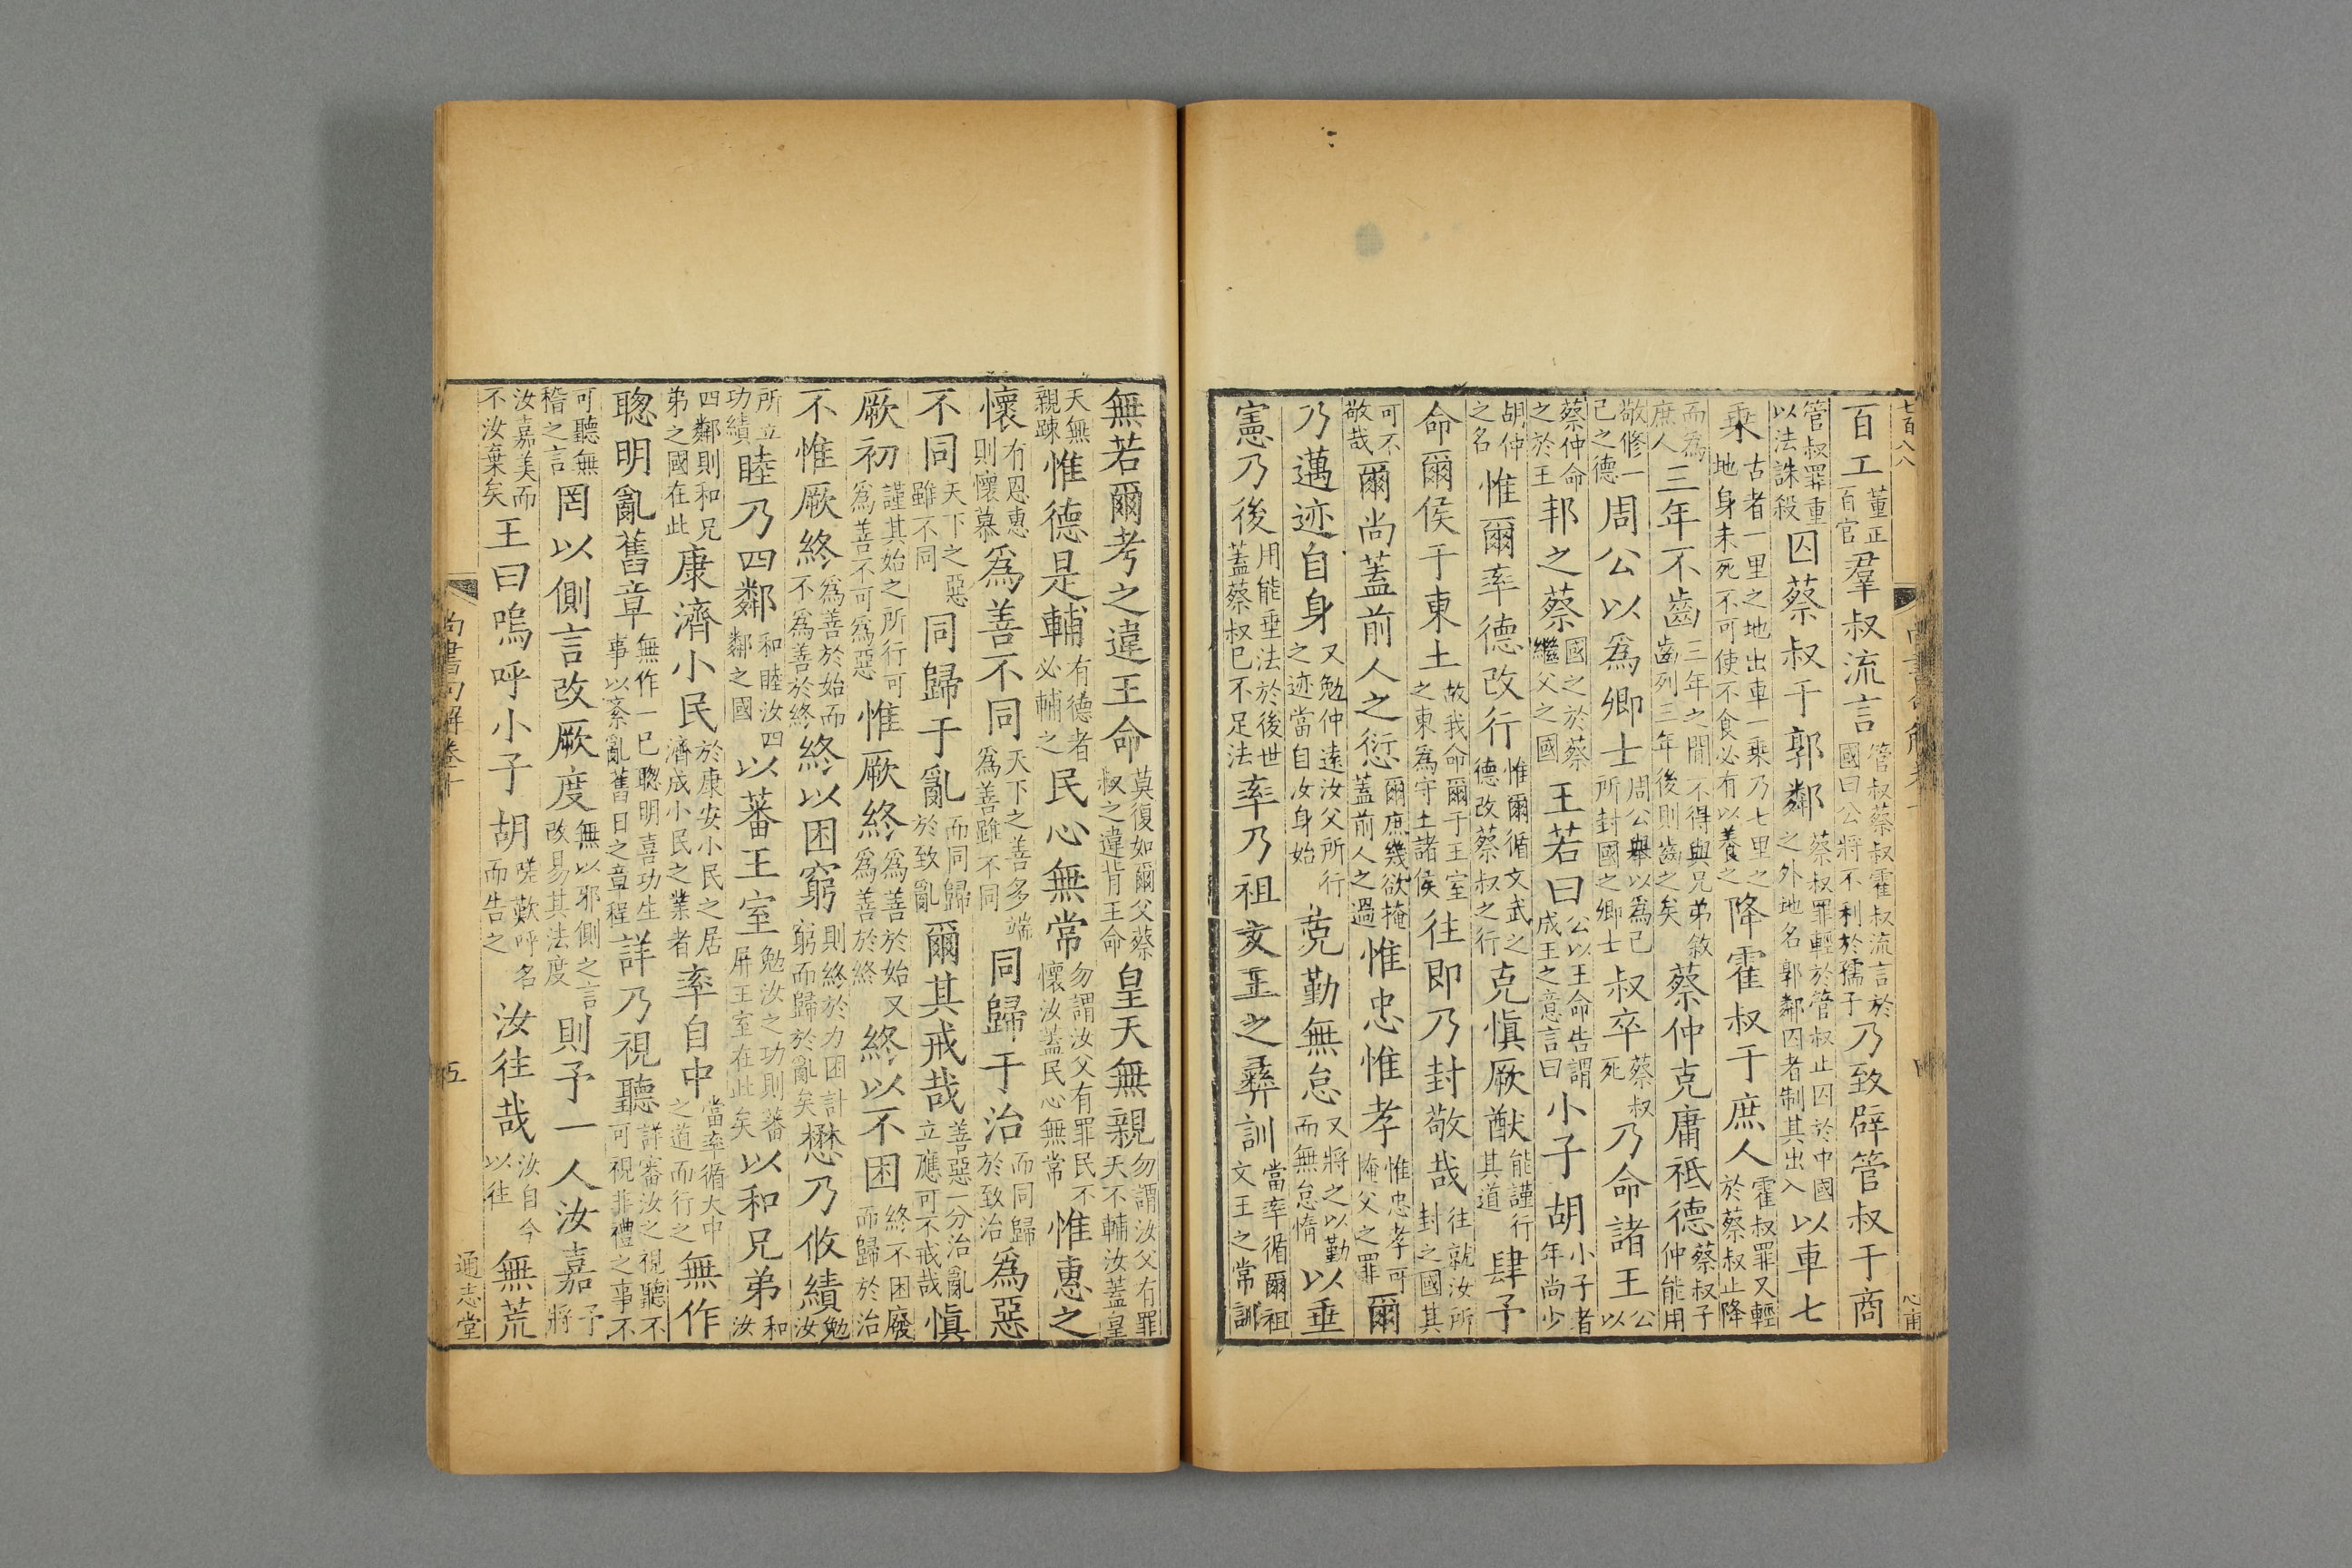 七百八八
百工董正百官羣叔流言管叔蔡叔霍叔流言於國曰公將不利於孺子乃致辟管叔于商
管叔罪重以法誅殺囚蔡叔于郭鄰蔡叔罪輕於管叔止囚於中國之外地名郭鄰囚者制其出入以車七
乘古者一里之地出車一乘乃七里之地身未死不可使不食必有以養之降霍叔于庶人霍叔罪又輕於蔡叔止降
而爲庶人三年不齒三年之間不得與兄弟敘齒列三年後則齒之矣蔡仲克庸祗德蔡叔子仲能用
敬修一己之德周公以爲卿士周公舉以為己所封國之卿士叔卒蔡叔死乃命諸王公以
蔡仲命之於王邦之蔡國之於蔡繼父之國王若曰公以王命告謂成王之意言曰小子胡小子者年尚少
胡仲之名惟爾率德改行惟爾循文武之德改蔡叔之行克愼厥猷能謹行其道肆予
命爾侯于東土故我命爾于王室之東為守土諸侯往即乃封敬哉往就汝所封之國其
可不敬哉爾尚蓋前人之愆爾庶幾欲掩蓋前人之過惟忠惟孝惟忠孝可掩父之罪爾
乃邁迹自身又勉仲遠汝父所行之迹當自汝身始克勤無怠又將之以勤而無怠惰以垂
憲乃後用能垂法於後世蓋蔡叔已不足法率乃祖文王之彝訓當率循爾祖文王之常訓
無若爾考之違王命莫復如爾父蔡叔之違背王命皇天無親勿謂汝父有罪天不輔汝蓋皇
天無親踈惟德是輔有德者必輔之民心無常勿謂汝父有罪民不懷汝蓋民心無常惟惠之
懷有恩惠則懷慕爲善不同天下之善多端爲善雖不同同歸于治而同歸於致治爲惡
不同天下之惡雖不同同歸于亂而同歸於致亂爾其戒哉善惡一分治亂立應可不戒哉愼
厥初謹其始之所行可爲善不可爲惡惟厥終爲善於始又爲善於終終以不困終不困廢而歸於治
不惟厥終爲善於始而不爲善於終終以困窮則終於力困計窮而歸於亂矣懋乃攸績勉汝
所立功績睦乃四鄰和睦汝四鄰之國以蕃王室勉汝之功則蕃屏王室在此矣以和兄弟和汝
四鄰則和兄弟之國在此康濟小民於康安小民之居濟成小民之業者率自中當率循大中之道而行之無作
聰明亂舊章無作一己聰明喜功生事以紊亂舊日之章程詳乃視聽詳審汝之視聽不可視非禮之事不
可聽無稽之言罔以側言改厥度無以邪側之言改易其法度則予一人汝嘉予將
汝嘉美而不汝棄矣王曰嗚呼小子胡嗟歎呼名而告之汝往哉汝自今以往無荒
尚書句解卷十 五 通志堂